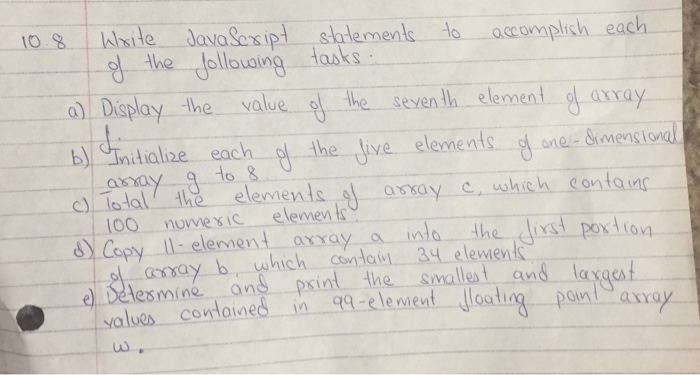 10.8 Write JavaScript statements to accomplish each
of the following tasks.
a) Display the value of the seventh element of array
f.
b) Initialize each of the five elements of one-dimensional
array g to 8
c) Total the elements of array c, which contains
100 numeric elements
d) Copy 11-element array a into the first portion
of array b, which contain 34 elements
e) Determine and print the smallest and largest
values contained in 99-element floating point array
w.